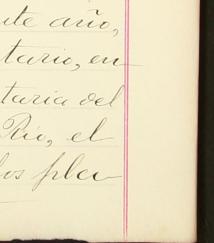 nte año,
tario, en
taria del
Rio, el
los pla